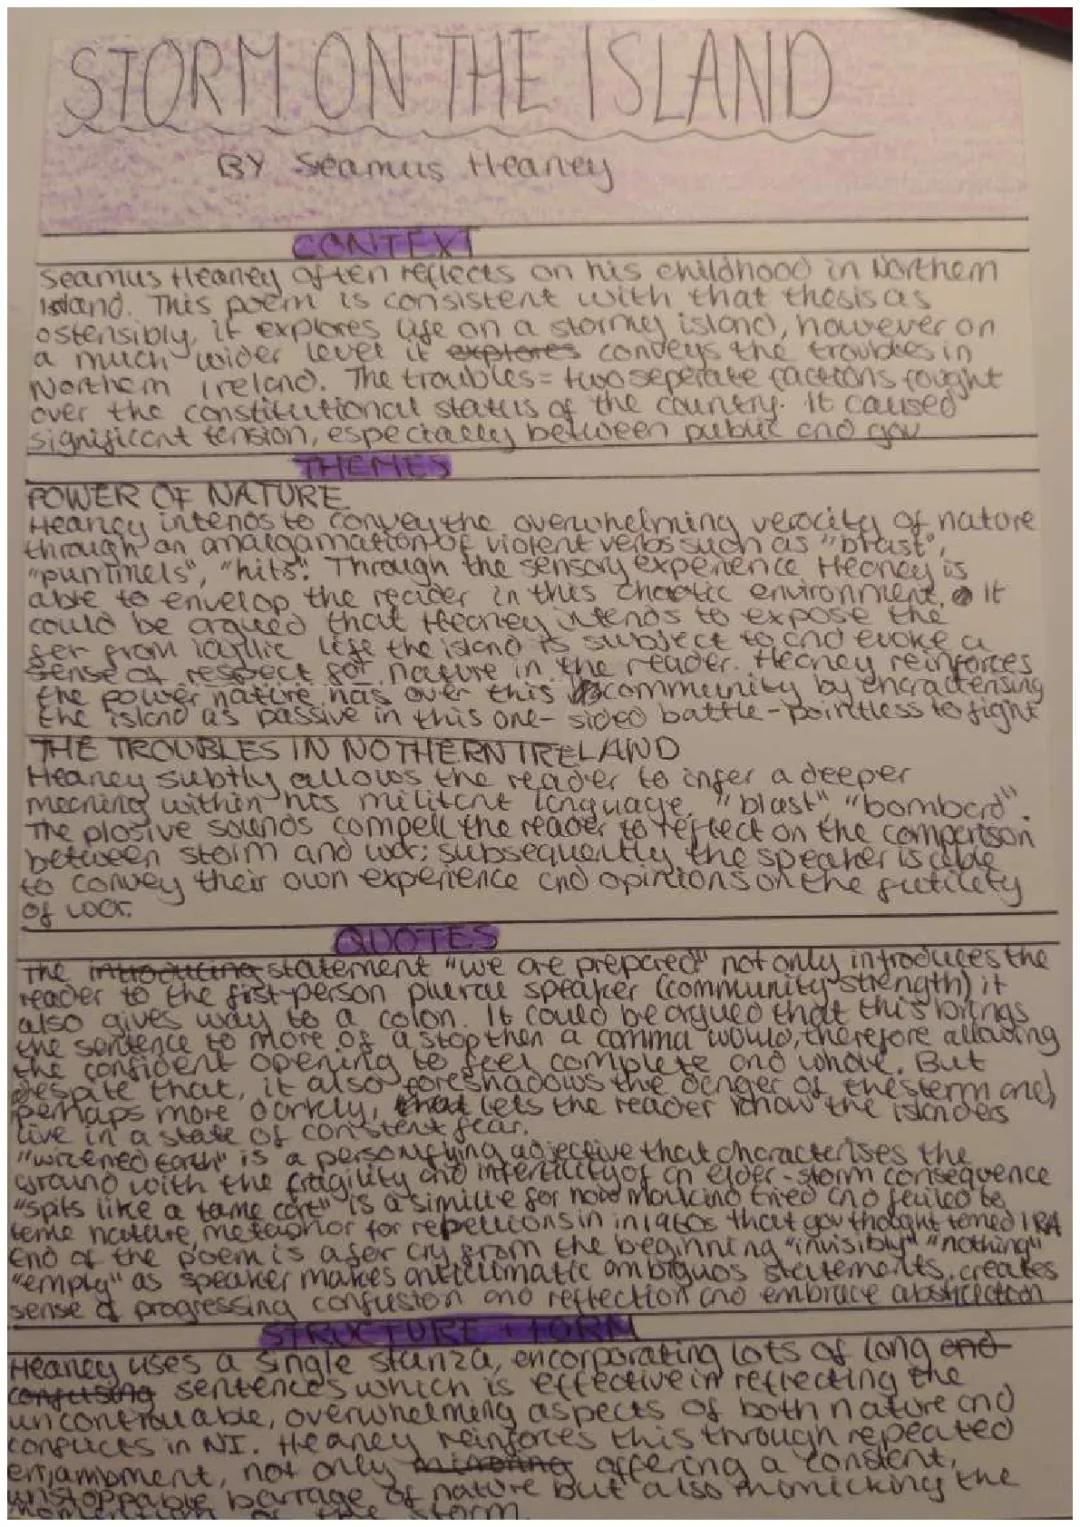 STORM ON THE ISLAND
BY Seamus Heaney
CONTEXT
Seamus Heaney often reflects on his childhood in Northern
Island. This poem is consistent with that thesis as
ostensibly, it explores life on a stormy island, however on
a much wider level it explores conveys the troubles in
Northern Ireland. The troubles = two seperate factions fought
over the constitutional status of the country. It caused
significant tension, especially between public and gov
THEMES
POWER OF NATURE
Heaney intends to convey the overwhelming verocity of nature
through an amalgamation of violent verbs such as "blast",
"pummels", "hits". Through the sensory experience Heaney is
able to envelop the reader in this chaotic environment. It
could be argued that Heaney intends to expose the
far from idyllic life the island is subject to and evoke a
sense of respect for nature in the reader. Heaney reinforces
the power nature has over this community by characterising
the island as passive in this one-sided battle - pointless to fight
THE TROUBLES IN NOTHERN IRELAND
Heaney subtly allows the reader to infer a deeper
meaning within his militant language, "blast", "bombard".
The plosive sounds compell the reader to reflect on the comparison
between storm and war; subsequently the speaker is able
to convey their own experience and opinions on the futility
of war.
QUOTES
The introducing statement "we are prepared" not only introduces the
reader to the first-person plural speaker (community strength) it
also gives way to a colon. It could be argued that this brings
the sentence to more of a stop then a comma would, therefore allowing
the confident opening to feel complete and whole. But
despite that, it also foreshadows the danger of the storm and,
perhaps more darkly, that lets the reader know the islanders
live in a state of constent fear.
"wizened earth" is a personifying adjective that characterises the
ground with the fragility and infertility of an elder - storm consequence
"spits like a tame cat" is a simile for how mankind tried and failed to
tame nature, metaphor for repetitions in in 1960s that gov thought tamed IRA
End of the poem is a far cry from the beginning "invisibly" "nothing"
"empty" as speaker makes anticlimatic ambiguos statements, creates
sense of progressing confusion and reflection and embrace abstraction
STRUCTURE + FORM
Heaney uses a single stanza, encorporating lots of long end
confusing sentences which is effective in reflecting the
uncontrollable, overwhelming aspects of both nature and
conflicts in NI. Heaney reinforces this through repeated
enjambment, not only mirroring offering a constent,
unstoppable barrage of nature but also mimicking the
momentum of the storm.